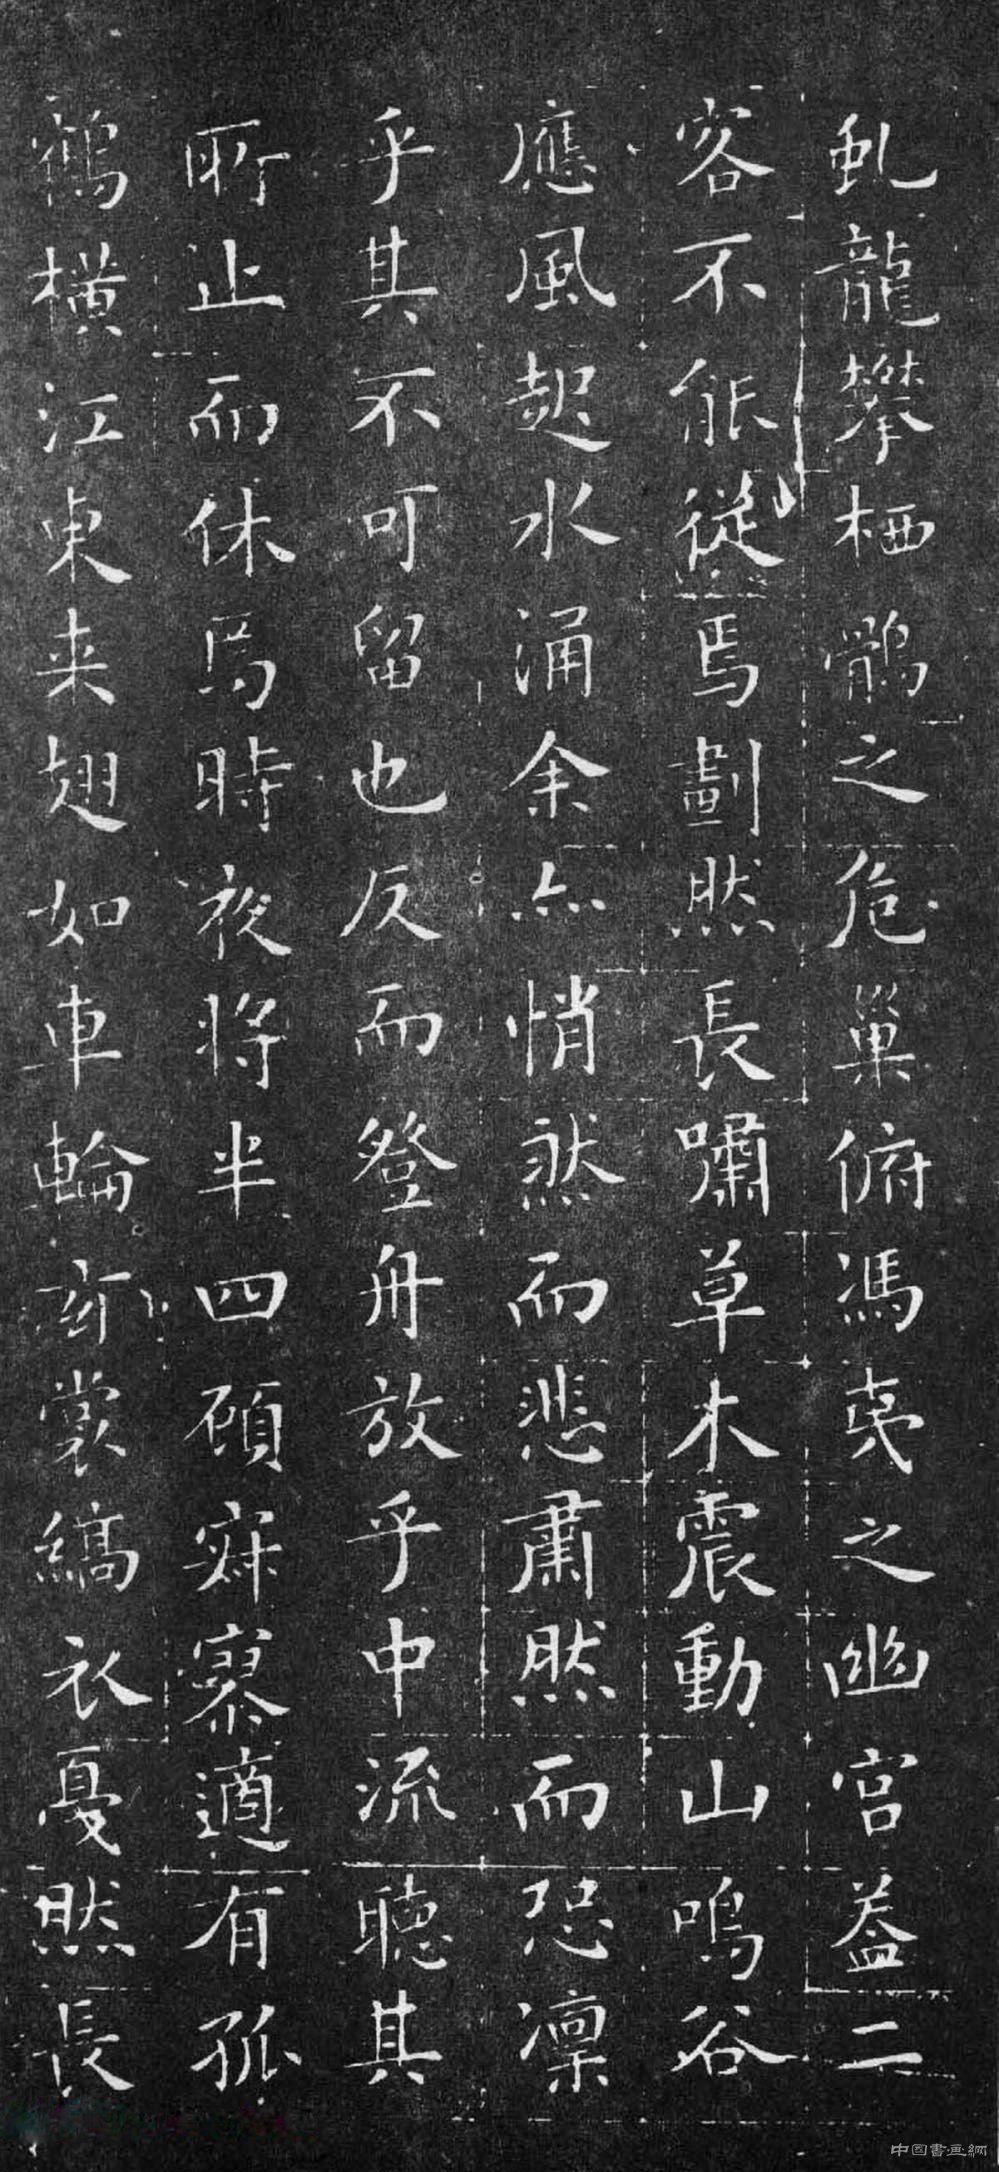 虬龍攀栖鶻之危巢俯馮夷之幽宮蓋二
客不能從焉劃然長嘯草木震動山鳴谷
應風起水涌余亦悄然而悲肅然而恐凜
乎其不可留也反而登舟放乎中流聽其
所止而休焉時夜將半四顧寂寥適有孤
鶴橫江東来翅如車輪玄裳縞衣戛然長
中国書画網